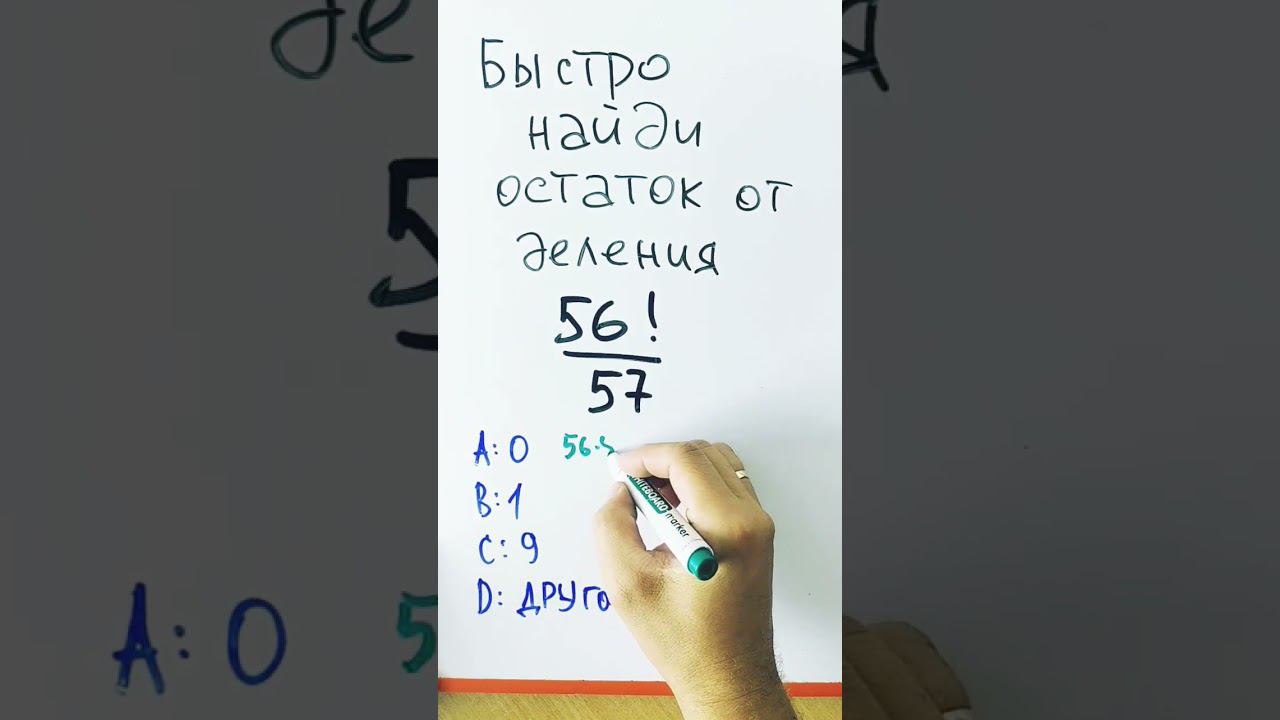 Быстро
найди
остаток от
деления
56!
57
A: 0 56·5
B: 1
C: 9
D: ДРУГО
WHITEBOARD marker